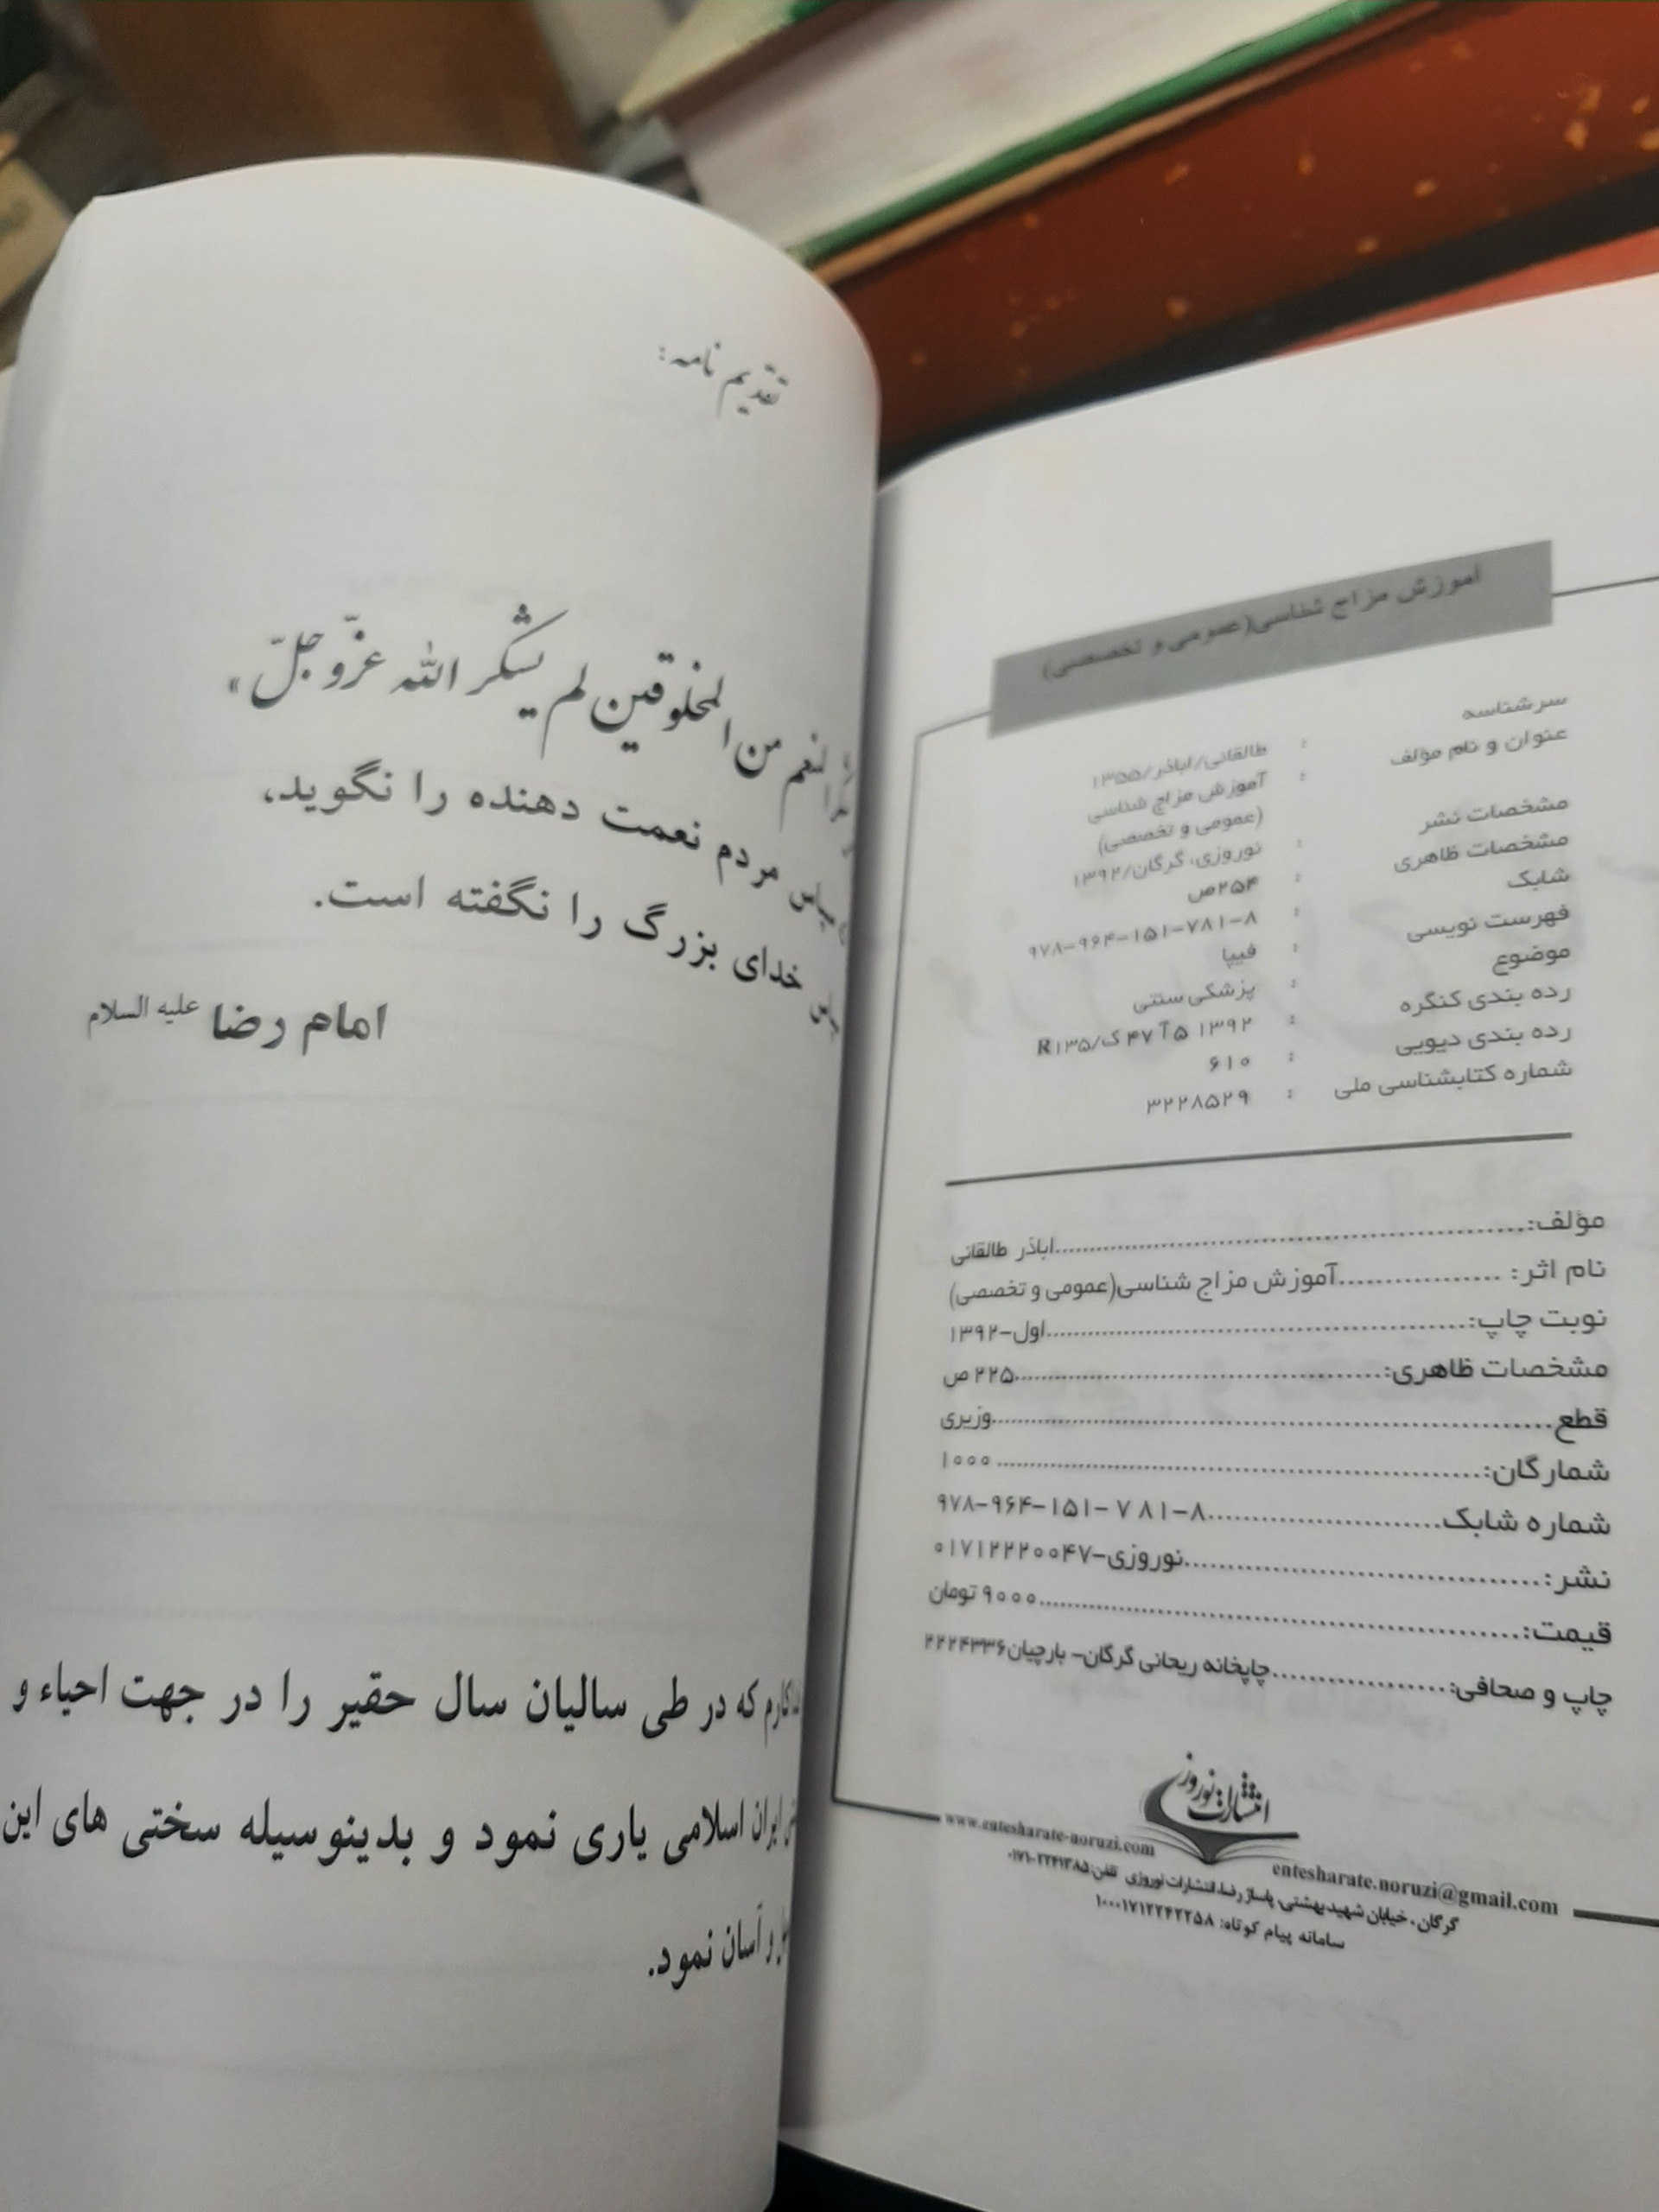 آموزش مزاج شناسی(عمومی و تخصصی)
سرشناسه : طالقانی/اباذر/۱۳۵۵
عنوان و نام مؤلف : آموزش مزاج شناسی
(عمومی و تخصصی)
مشخصات نشر : نوروزی، گرگان/۱۳۹۲
مشخصات ظاهری : ۲۵۴ص
شابک : ۹۷۸-۹۶۴-۱۵۱-۷۸۱-۸
فهرست نویسی : فیپا
موضوع : پزشکی سنتی
رده بندی کنگره : ۱۳۹۲ ۵آ۴۷ک/R۱۳۵
رده بندی دیویی : ۶۱۰
شماره کتابشناسی ملی : ۳۲۲۸۵۲۹
مؤلف:..........اباذر طالقانی
نام اثر: ..........آموزش مزاج شناسی(عمومی و تخصصی)
نوبت چاپ:..........اول-۱۳۹۲
مشخصات ظاهری:..........۲۲۵ص
قطع..........وزیری
شمارگان:..........۱۰۰۰
شماره شابک..........۹۷۸-۹۶۴-۱۵۱-۷۸۱-۸
نشر:..........نوروزی-۰۱۷۱۲۲۲۰۰۴۷
قیمت:..........۹۰۰۰ تومان
چاپ و صحافی:..........چاپخانه ریحانی گرگان- بارچیان۲۲۲۴۳۳۶
انتشارات نوروزی
www.entesharate-noruzi.com
entesharate.noruzi@gmail.com
گرگان، خیابان شهید بهشتی، پاساژ رضا، انتشارات نوروزی تلفن:۰۱۷۱-۲۲۴۱۳۸۵
سامانه پیام کوتاه: ۱۰۰۰۱۷۱۲۲۴۲۲۵۸
تقدیم نامه:
المنعم من المخلوقین لم یشکر الله عزّ و جلّ»
سپاس مردم نعمت دهنده را نگوید،
سپاس خدای بزرگ را نگفته است.
امام رضا علیه السلام
که در طی سالیان سال حقیر را در جهت احیاء و
ایران اسلامی یاری نمود و بدینوسیله سختی های این
و آسان نمود.